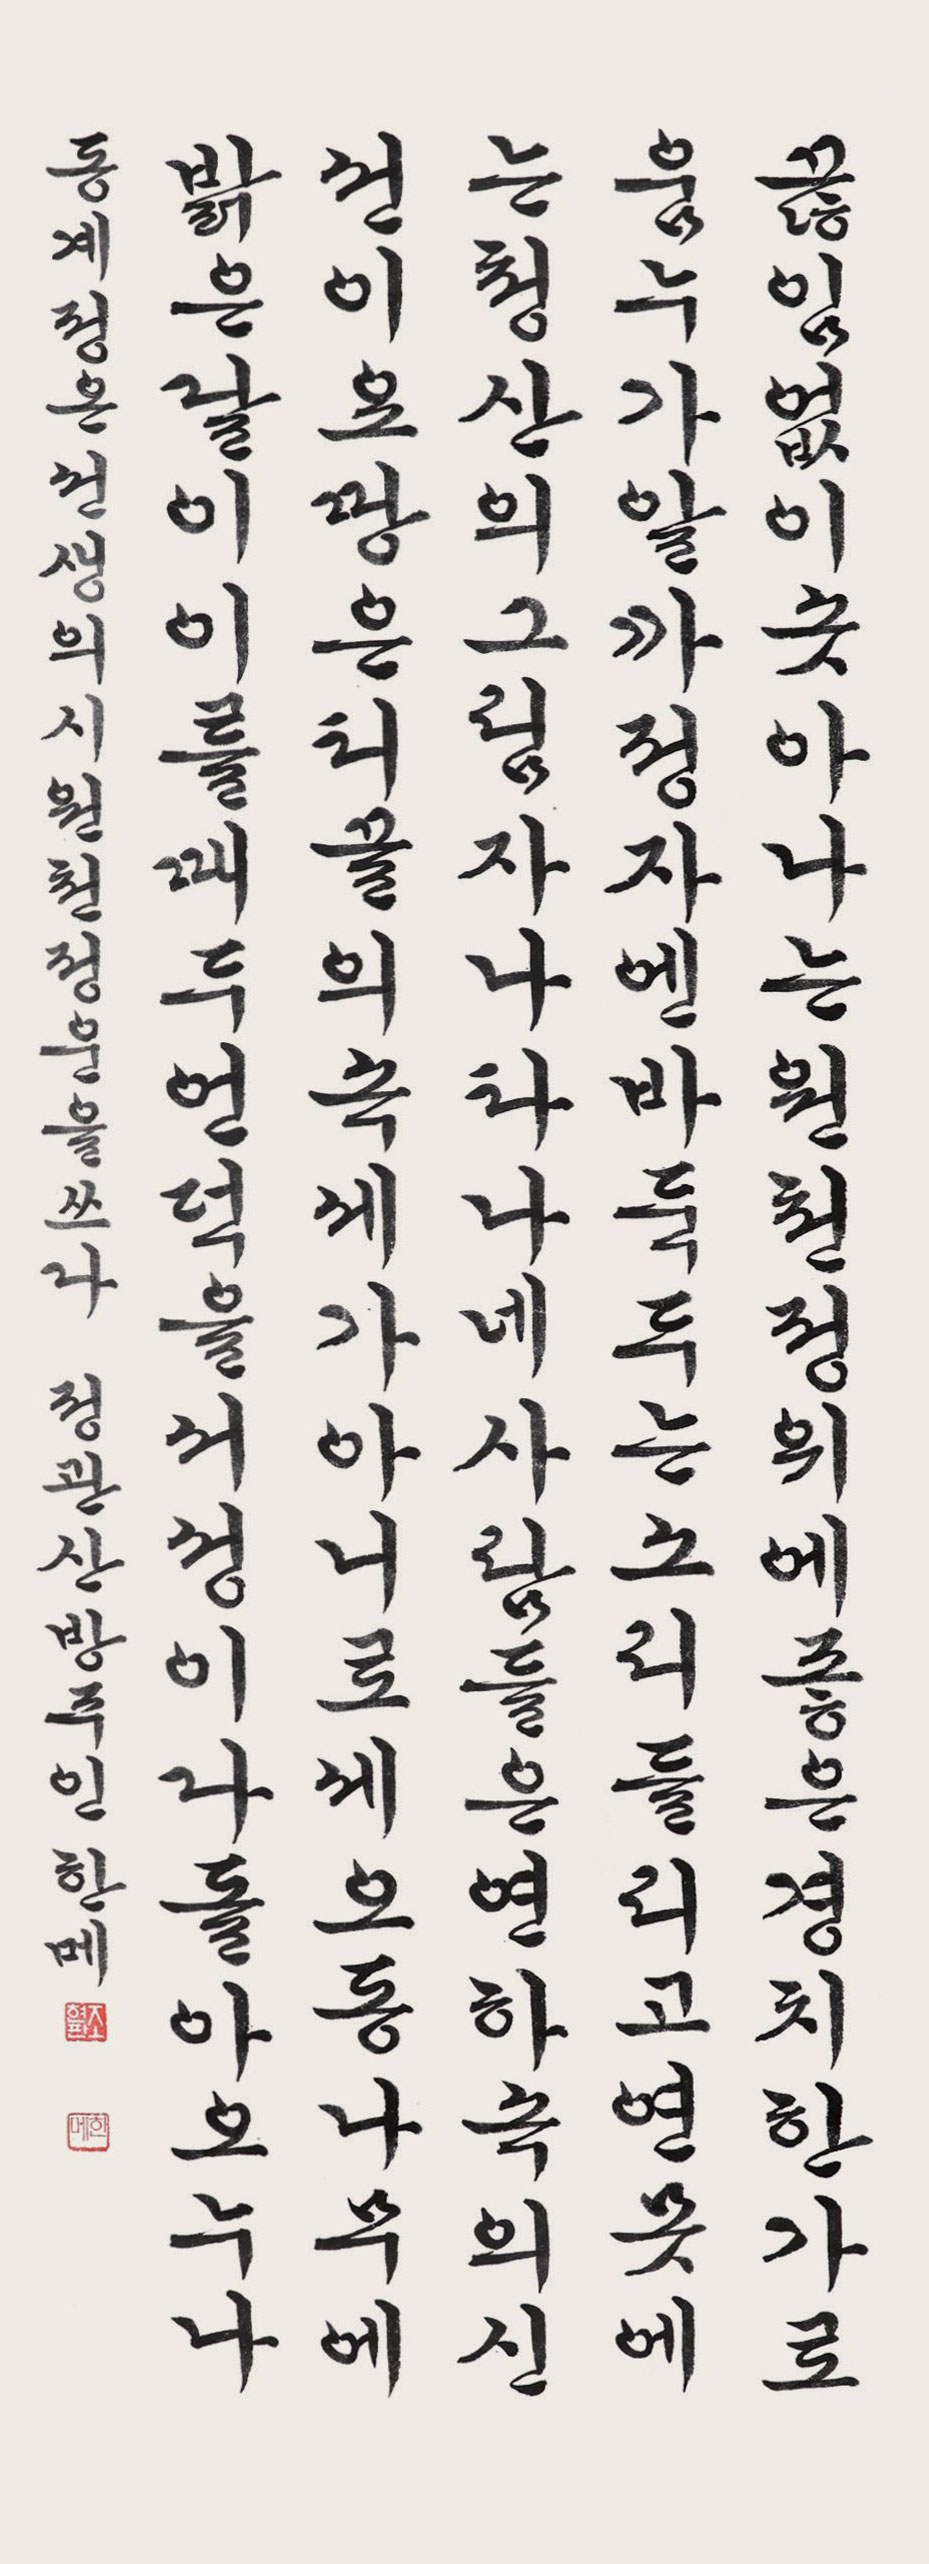 끊임없이솟아나는원천정위에좋은경치한가로
움누가알까정자엔바둑두는소리들리고연못에
는청산의그림자나타나네사람들은연하속의신
선이요땅은티끌의속세가아니로세오동나무에
밝은달이이를때두언덕을서성이다돌아오누나
동계정온선생의시원천정운을쓰다 정관산방주인 한메
조현판
한메